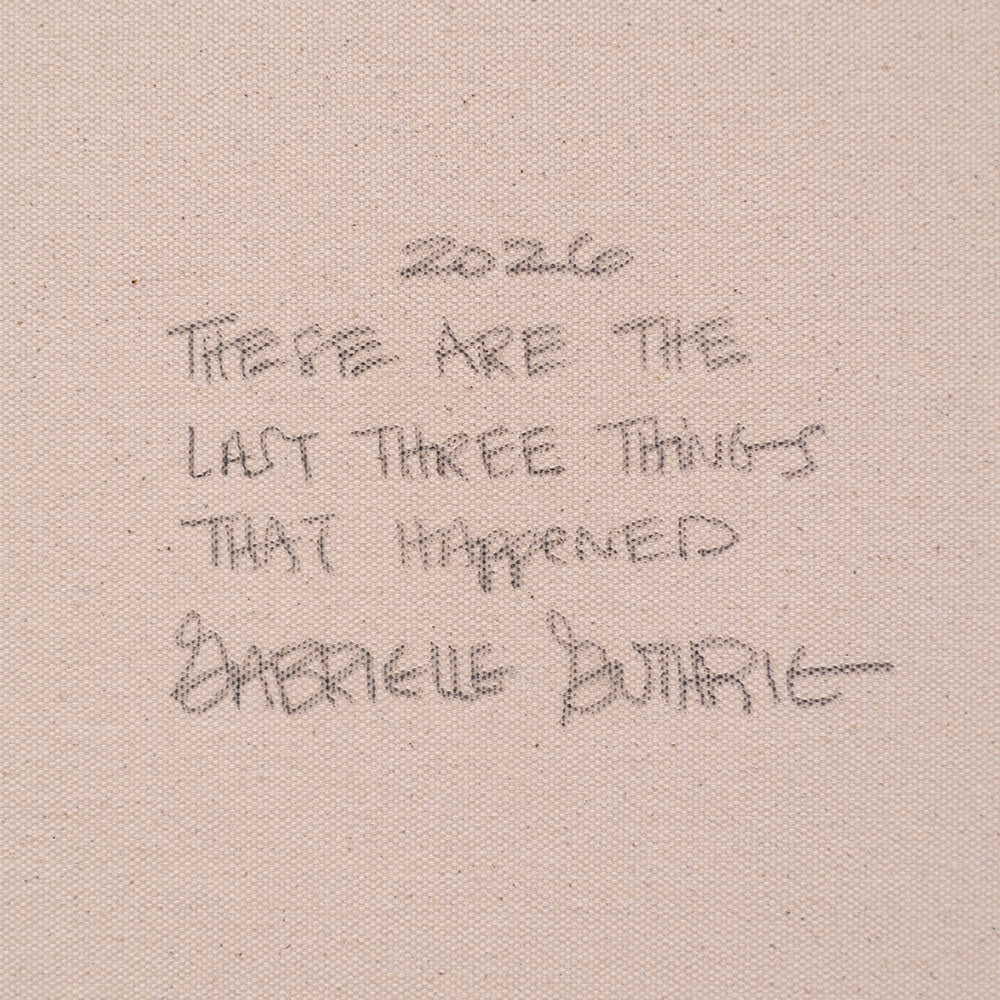 2026
THESE ARE THE
LAST THREE THINGS
THAT HAPPENED
GABRIELLE GUTHRIE